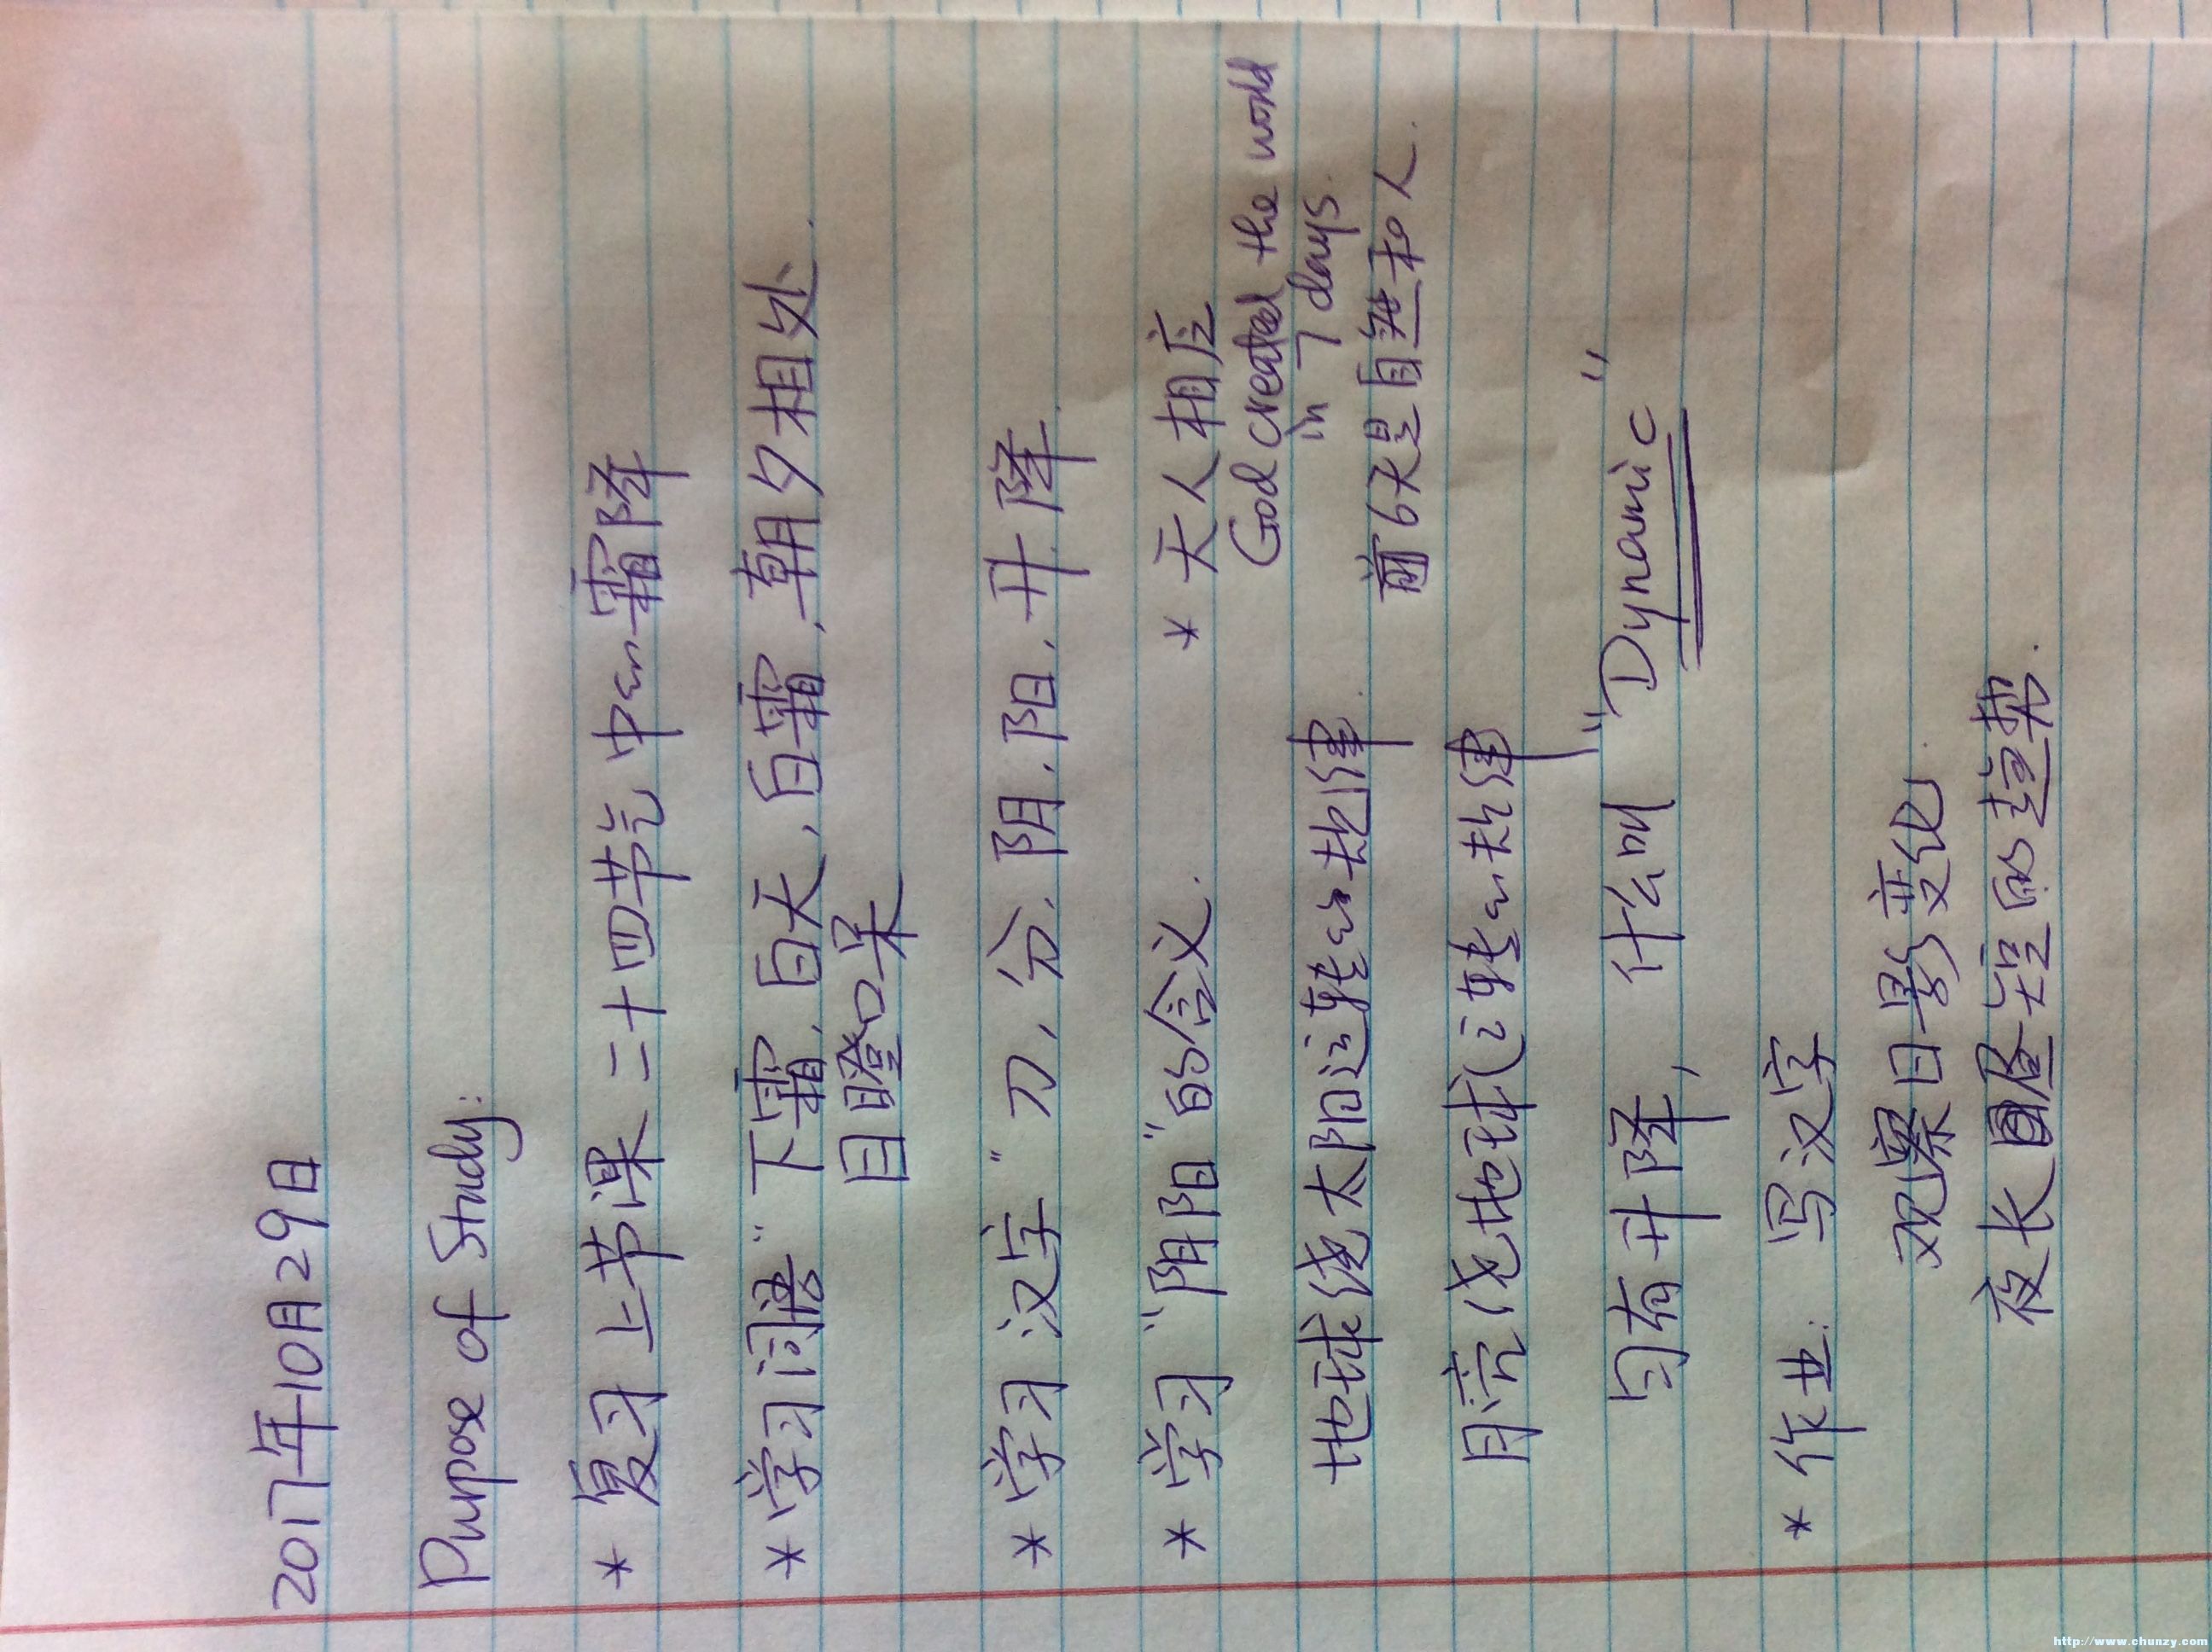 2017年10月29日
Purpose of Study:
* 复习上节课二十四节气中的霜降
* 学习词语"下霜,白天,白霜,朝夕相处.
目瞪口呆
* 学习汉字"刀,分,阴,阳,升,降.
* 学习"阴阳"的含义.
* 天人相应
God created the world
in 7 days.
前6天是自然和人.
地球绕太阳运转的规律.
月亮绕地球运转的规律
匀有升降, 什么叫"Dynamic"
* 作业: 写汉字
观察日影变化.
夜长昼短的趋势.
http://www.chunzy.com